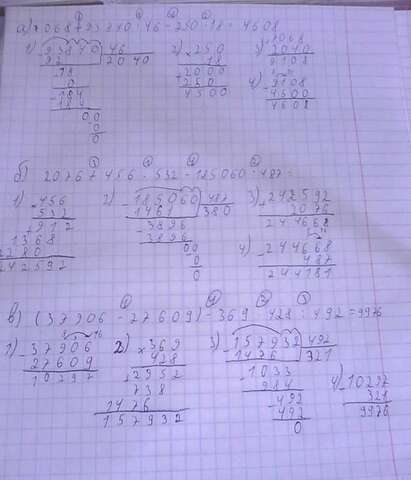 а) 7068 + 93840 : 46 - 250 · 18 = 4608
1) 93840 46 2) 250 3) 7068
92 2040 18 2040
18 2000 9108
0 250 4) 9108
184 4500 4500
184 4608
00
0
0
б) 2076 + 456 · 532 - 185060 : 487
1) 456 2) 185060 487 3) 242592
532 1461 380 2076
912 3896 244668
1368 3896 4) 244668
2280 00 487
242592 0 244181
0
в) (37906 - 27609) - 369 · 428 : 492 = 9976
1) 37906 2) 369 3) 157932 492
27609 428 1476 321
10297 2952 1033
738 984 4) 10297
1476 492 321
157932 492 9976
0